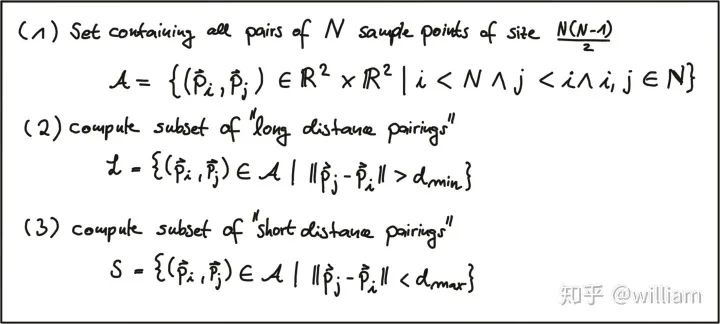 (1) Set containing all pairs of N sample points of size N(N-1)/2
A = {(p⃗ᵢ, p⃗ⱼ) ∈ ℝ² × ℝ² | i < N ∧ j < i ∧ i, j ∈ ℕ}
(2) compute subset of "long distance pairings"
L = {(p⃗ᵢ, p⃗ⱼ) ∈ A | ‖p⃗ⱼ - p⃗ᵢ‖ > d_min}
(3) compute subset of "short distance pairings"
S = {(p⃗ᵢ, p⃗ⱼ) ∈ A | ‖p⃗ⱼ - p⃗ᵢ‖ < d_max}
知乎 @william